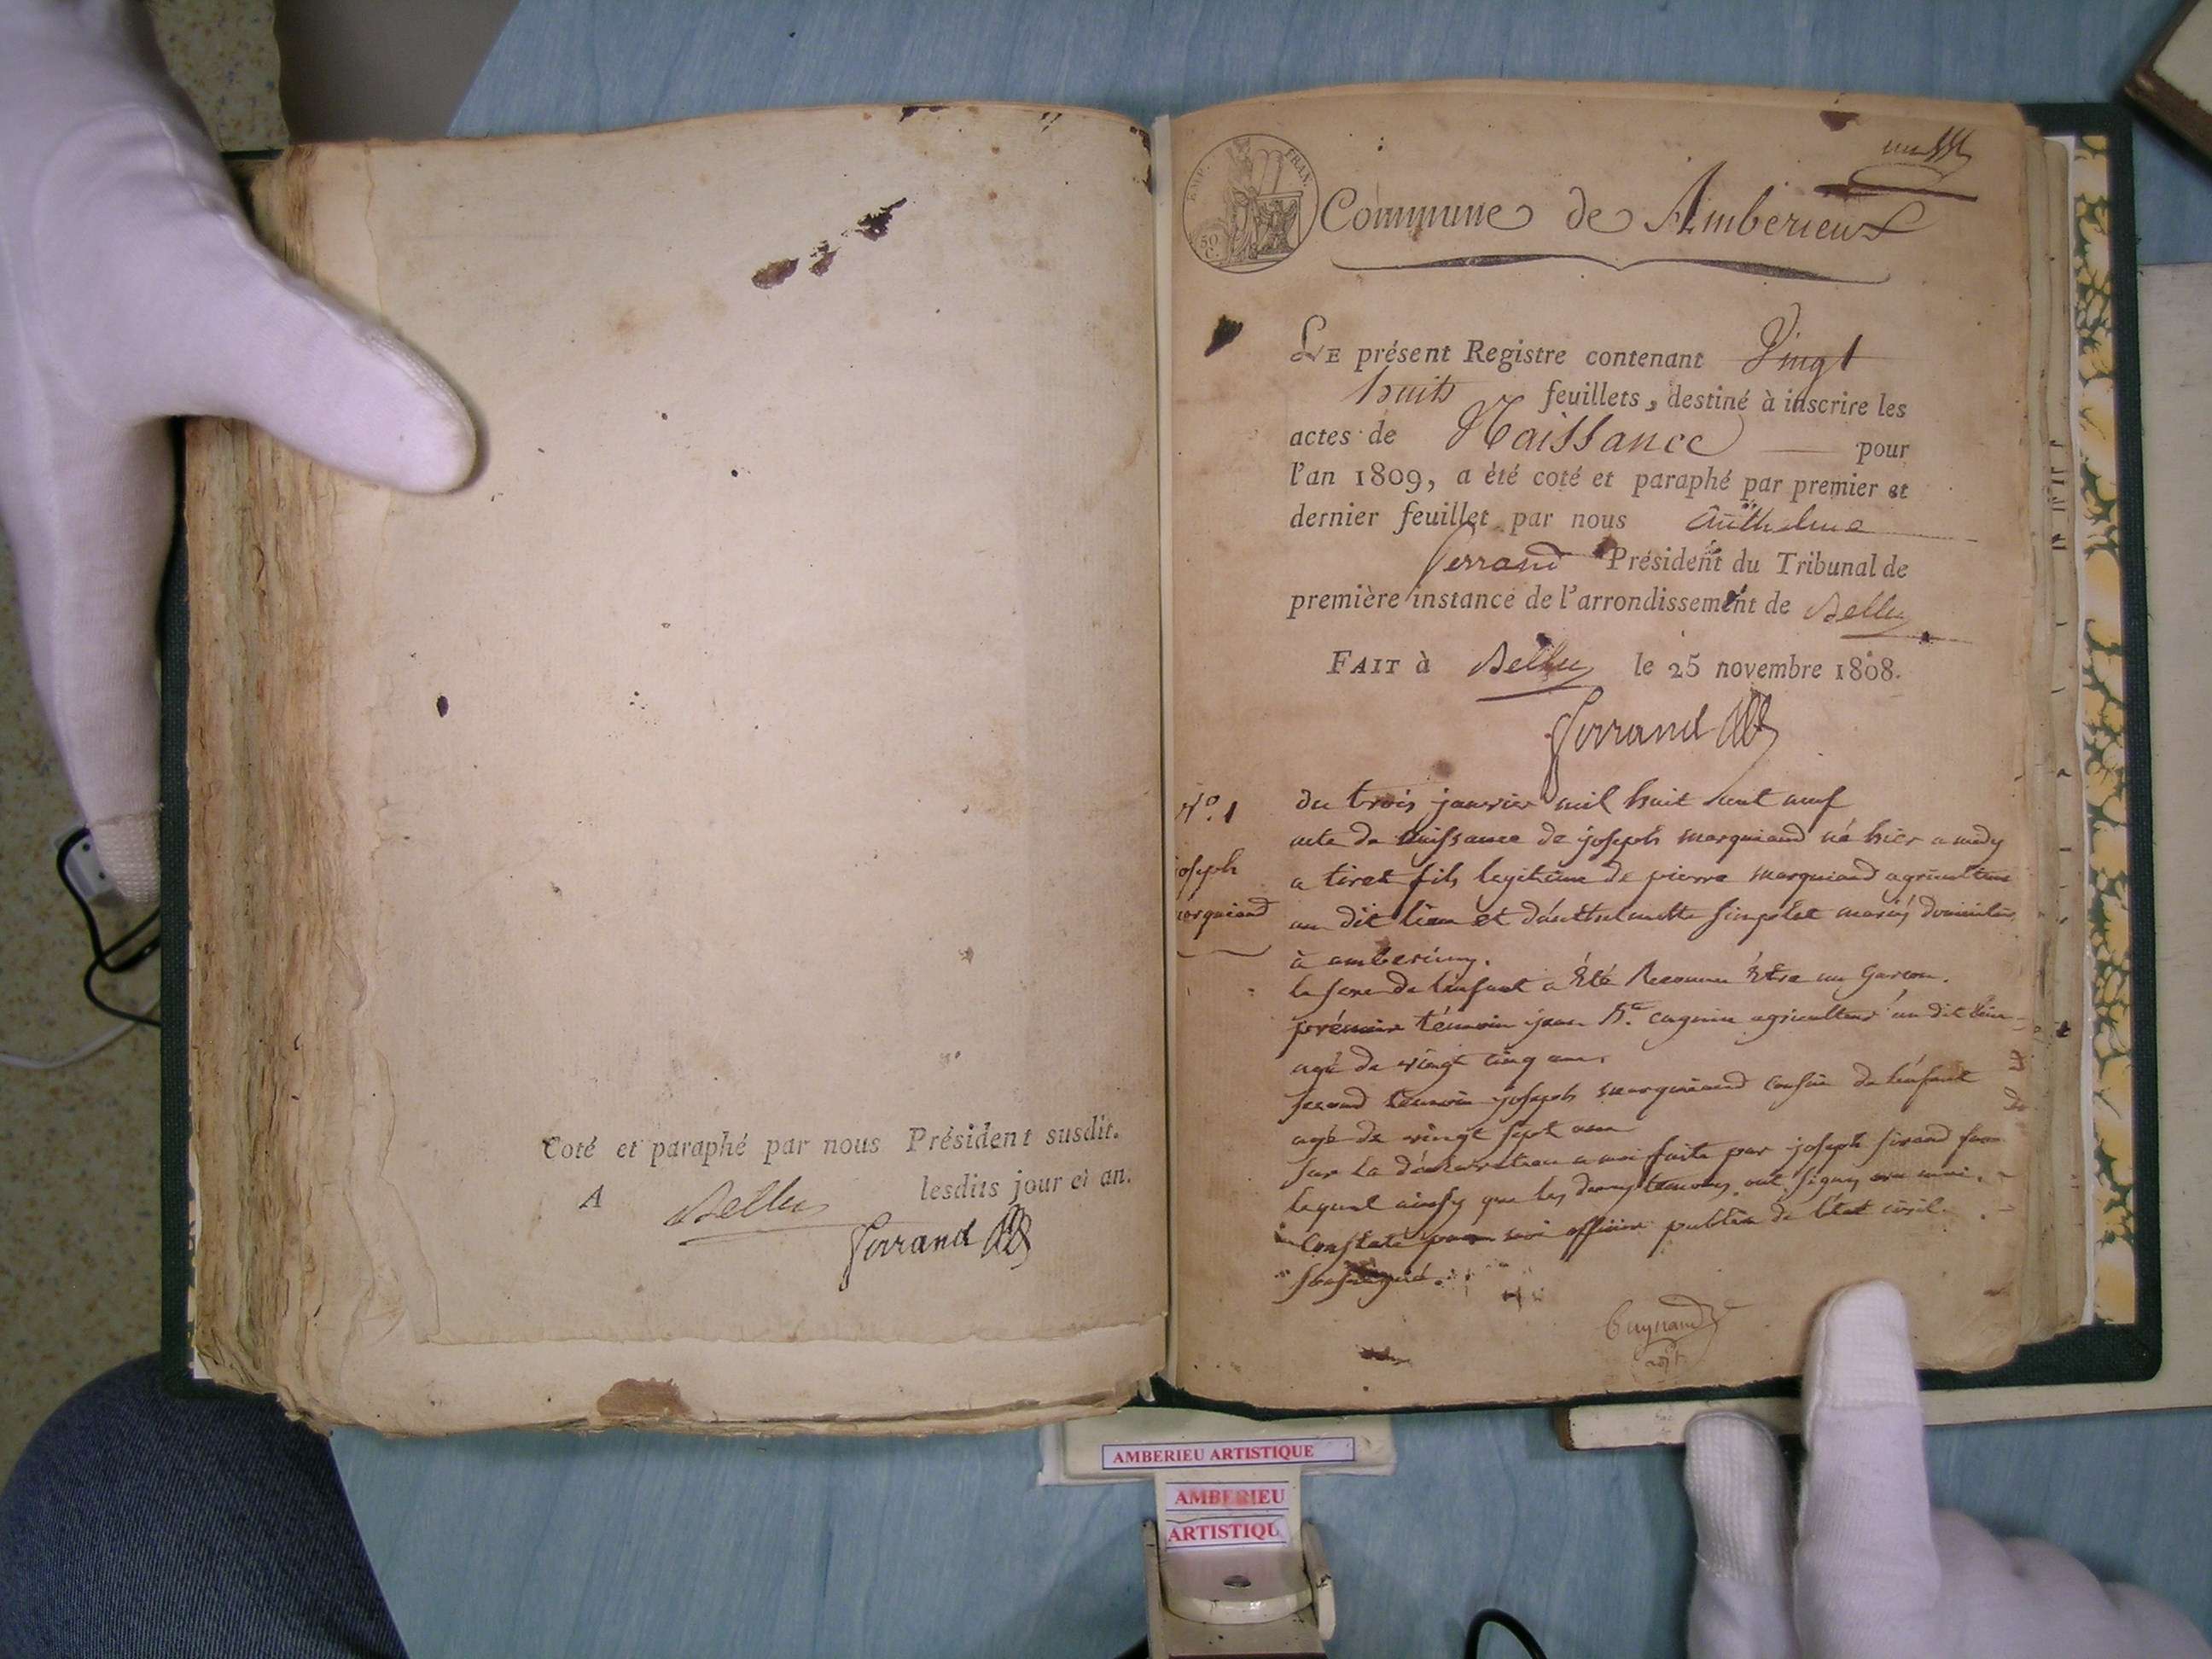 Coté et paraphé par nous Président susdit.
A Belley lesdits jour et an.
Ferrand
EMP. FRAN.
50 C.
Commune de Amberieux
LE présent Registre contenant Vingt
huit feuillets, destiné à inscrire les
actes de Naissance pour
l'an 1809, a été coté et paraphé par premier et
dernier feuillet par nous Anthelme
Ferrand Président du Tribunal de
première instance de l'arrondissement de Belley
FAIT à Belley le 25 novembre 1808.
Ferrand
N.o 1
joseph
marquiand
du trois janvier mil huit cent neuf
acte de naissance de joseph marquiand né hier a midy
a tiret fils legitime de pierre marquiand agriculteur
au dit lieu et d'anthelmette simplet mariés
à amberieux.
le sexe de l'enfant a été Reconnu être un Garcon.
prémier témoin jean agriculteur au dit lieu
agé de vingt cinq ans
second témoin joseph marquiand cousin de l'enfant
agé de vingt sept ans
sur la déclaration a moi faite par joseph sirand
lequel ainsy que les deux temoins ont signé
Constaté par moi officier public de l'état civil
soussigné.
AMBERIEU ARTISTIQUE
AMBERIEU
ARTISTIQU